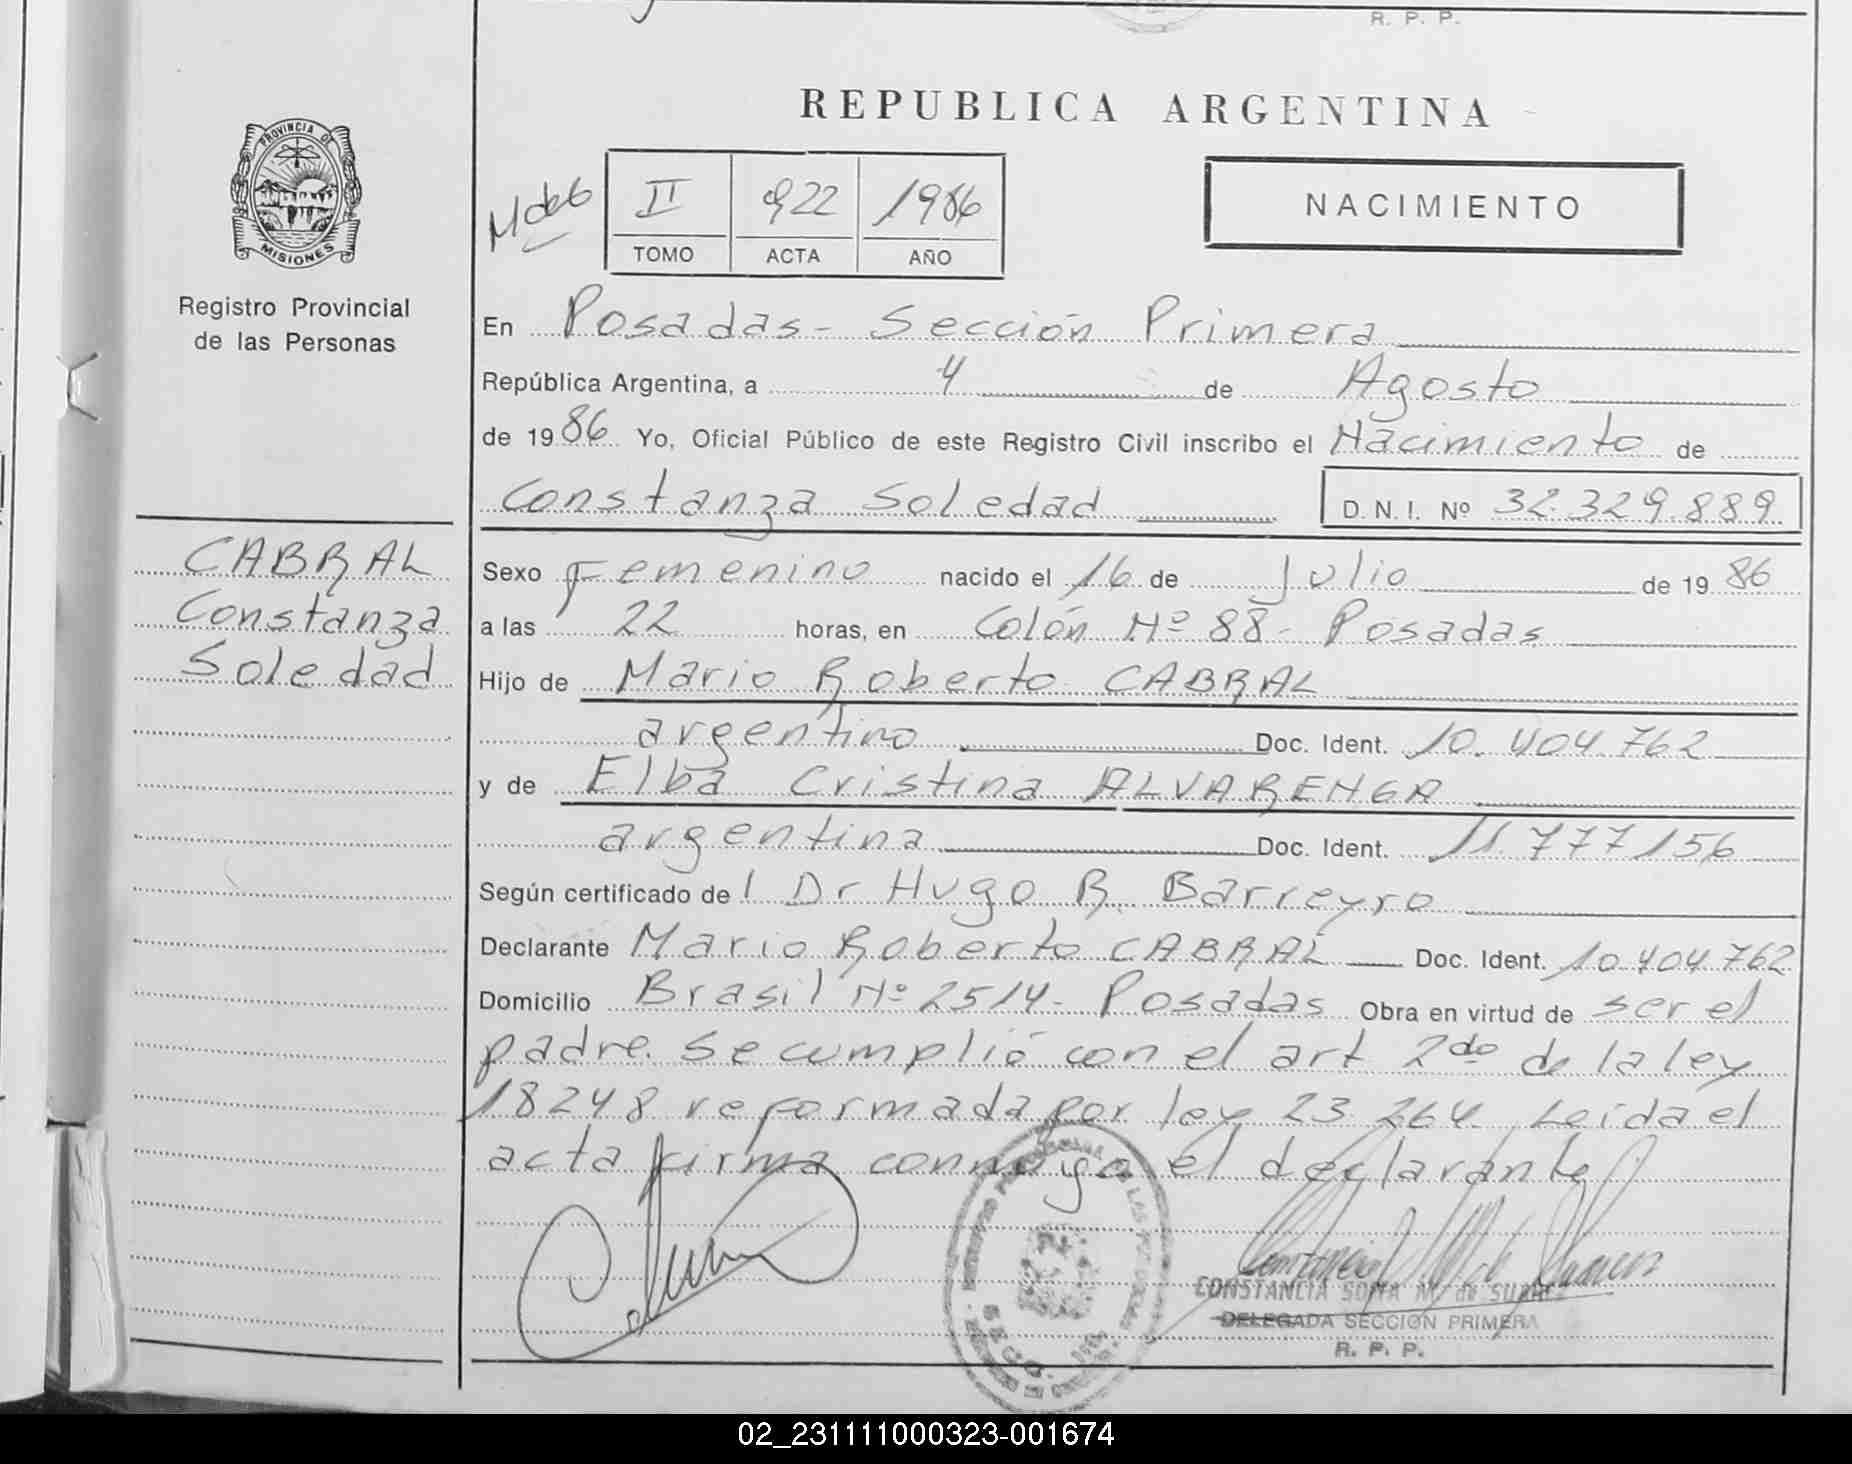 R. P. P.
REPUBLICA ARGENTINA
PROVINCIA DE
MISIONES
Registro Provincial
de las Personas
II 922 1986
TOMO ACTA AÑO
NACIMIENTO
En Posadas - Sección Primera
República Argentina, a 4 de Agosto
de 1986 Yo, Oficial Público de este Registro Civil inscribo el Nacimiento de
Constanza Soledad D.N.I. Nº 32.329.889
CABRAL
Constanza
Soledad
Sexo Femenino nacido el 16 de Julio de 1986
a las 22 horas, en Colón Nº 88 - Posadas
Hijo de Mario Roberto CABRAL
argentino Doc. Ident. 10.404.762
y de Elba Cristina ALVARENGA
argentina Doc. Ident. 11.777156
Según certificado de l Dr Hugo R. Barreyro
Declarante Mario Roberto CABRAL Doc. Ident. 10.404.762
Domicilio Brasil Nº 2514 - Posadas Obra en virtud de ser el
padre. Se cumplió con el art 2do de la ley
18248 reformada por ley 23.264. Leída el
acta firma conmigo el declarante
CONSTANCIA SOFIA M. de SUAREZ
DELEGADA SECCION PRIMERA
R. P. P.
02_231111000323-001674